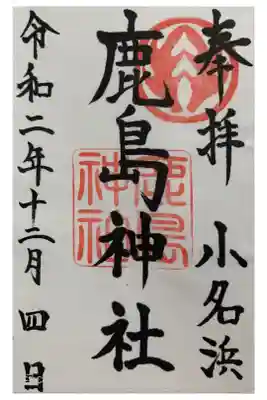 奉拝 小名浜
鹿島神社
鹿島
神社
令和二年十二月 四 日